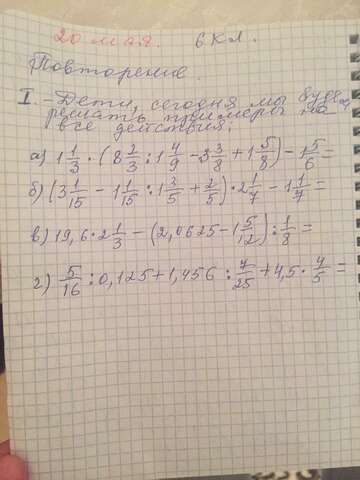 20 мая. 6 кл.
Повторение.
I. - Дети, сегодня мы будем
решать примеры на
все действия:
а) 1 1/3 · (8 2/3 : 1 4/9 - 3 3/8 + 1 5/8) - 1 5/6 =
б) (3 1/15 - 1 1/15 : 1 3/5 + 2/5) · 2 1/7 - 1 1/7 =
в) 19,6 · 2 1/3 - (2,0625 - 1 5/12) : 1/8 =
г) 5/16 : 0,125 + 1,456 : 7/25 + 4,5 · 4/5 =